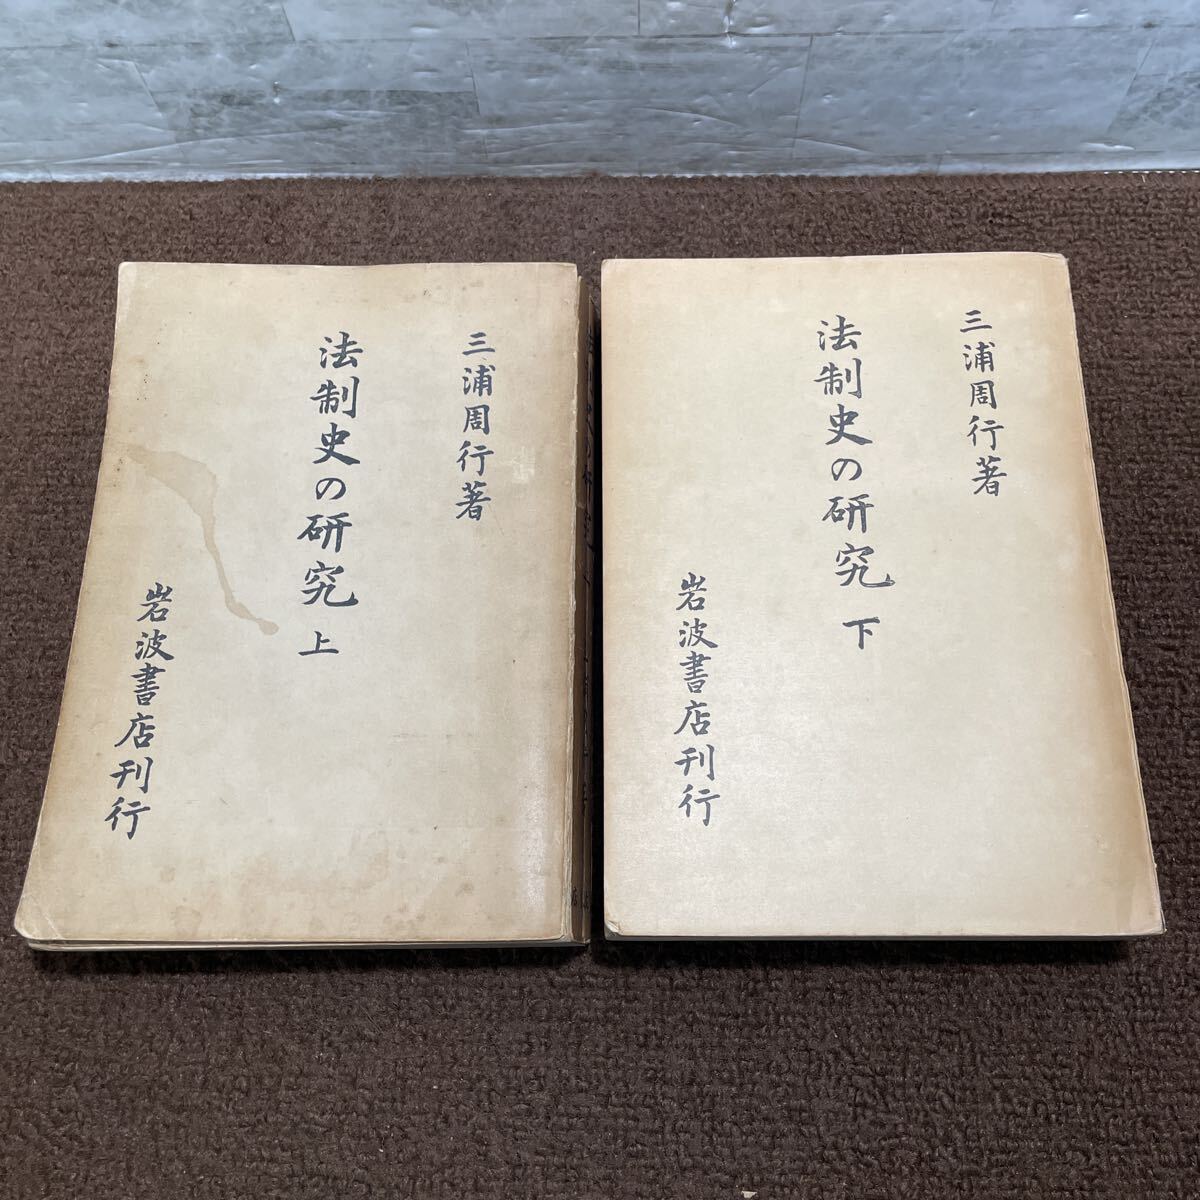 三浦周行著
法制史の研究 上
岩波書店刊行
三浦周行著
法制史の研究 下
岩波書店刊行